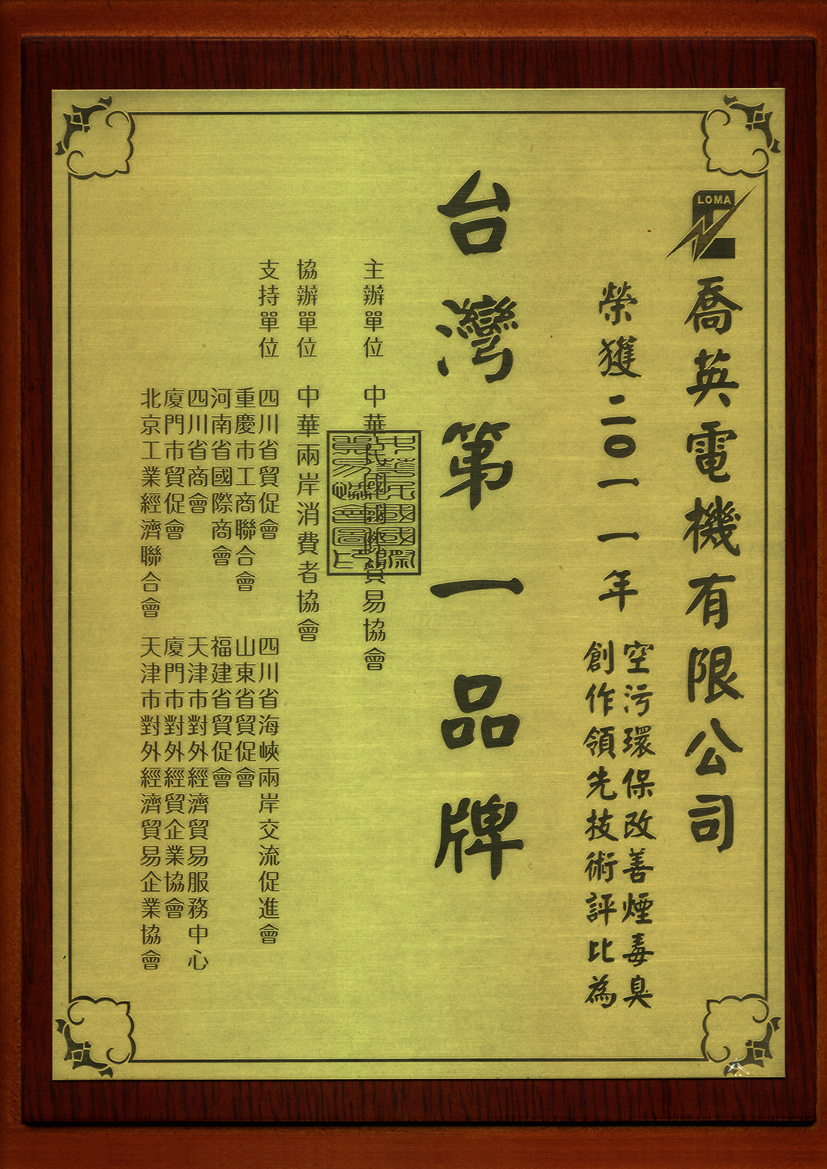 LOMA
喬英電機有限公司
榮獲二〇一一年
空污環保改善煙毒臭
創作領先技術評比為
台灣第一品牌
主辦單位 中華民國國際貿易協會
中華民國國際貿易協會圖記
協辦單位 中華兩岸消費者協會
支持單位 四川省貿促會 四川省海峽兩岸交流促進會
重慶市工商聯合會 山東省貿促會
河南省國際商會 福建省貿促會
四川省商會 天津市對外經濟貿易服務中心
廈門市貿促會 廈門市對外經貿企業協會
北京工業經濟聯合會 天津市對外經濟貿易企業協會